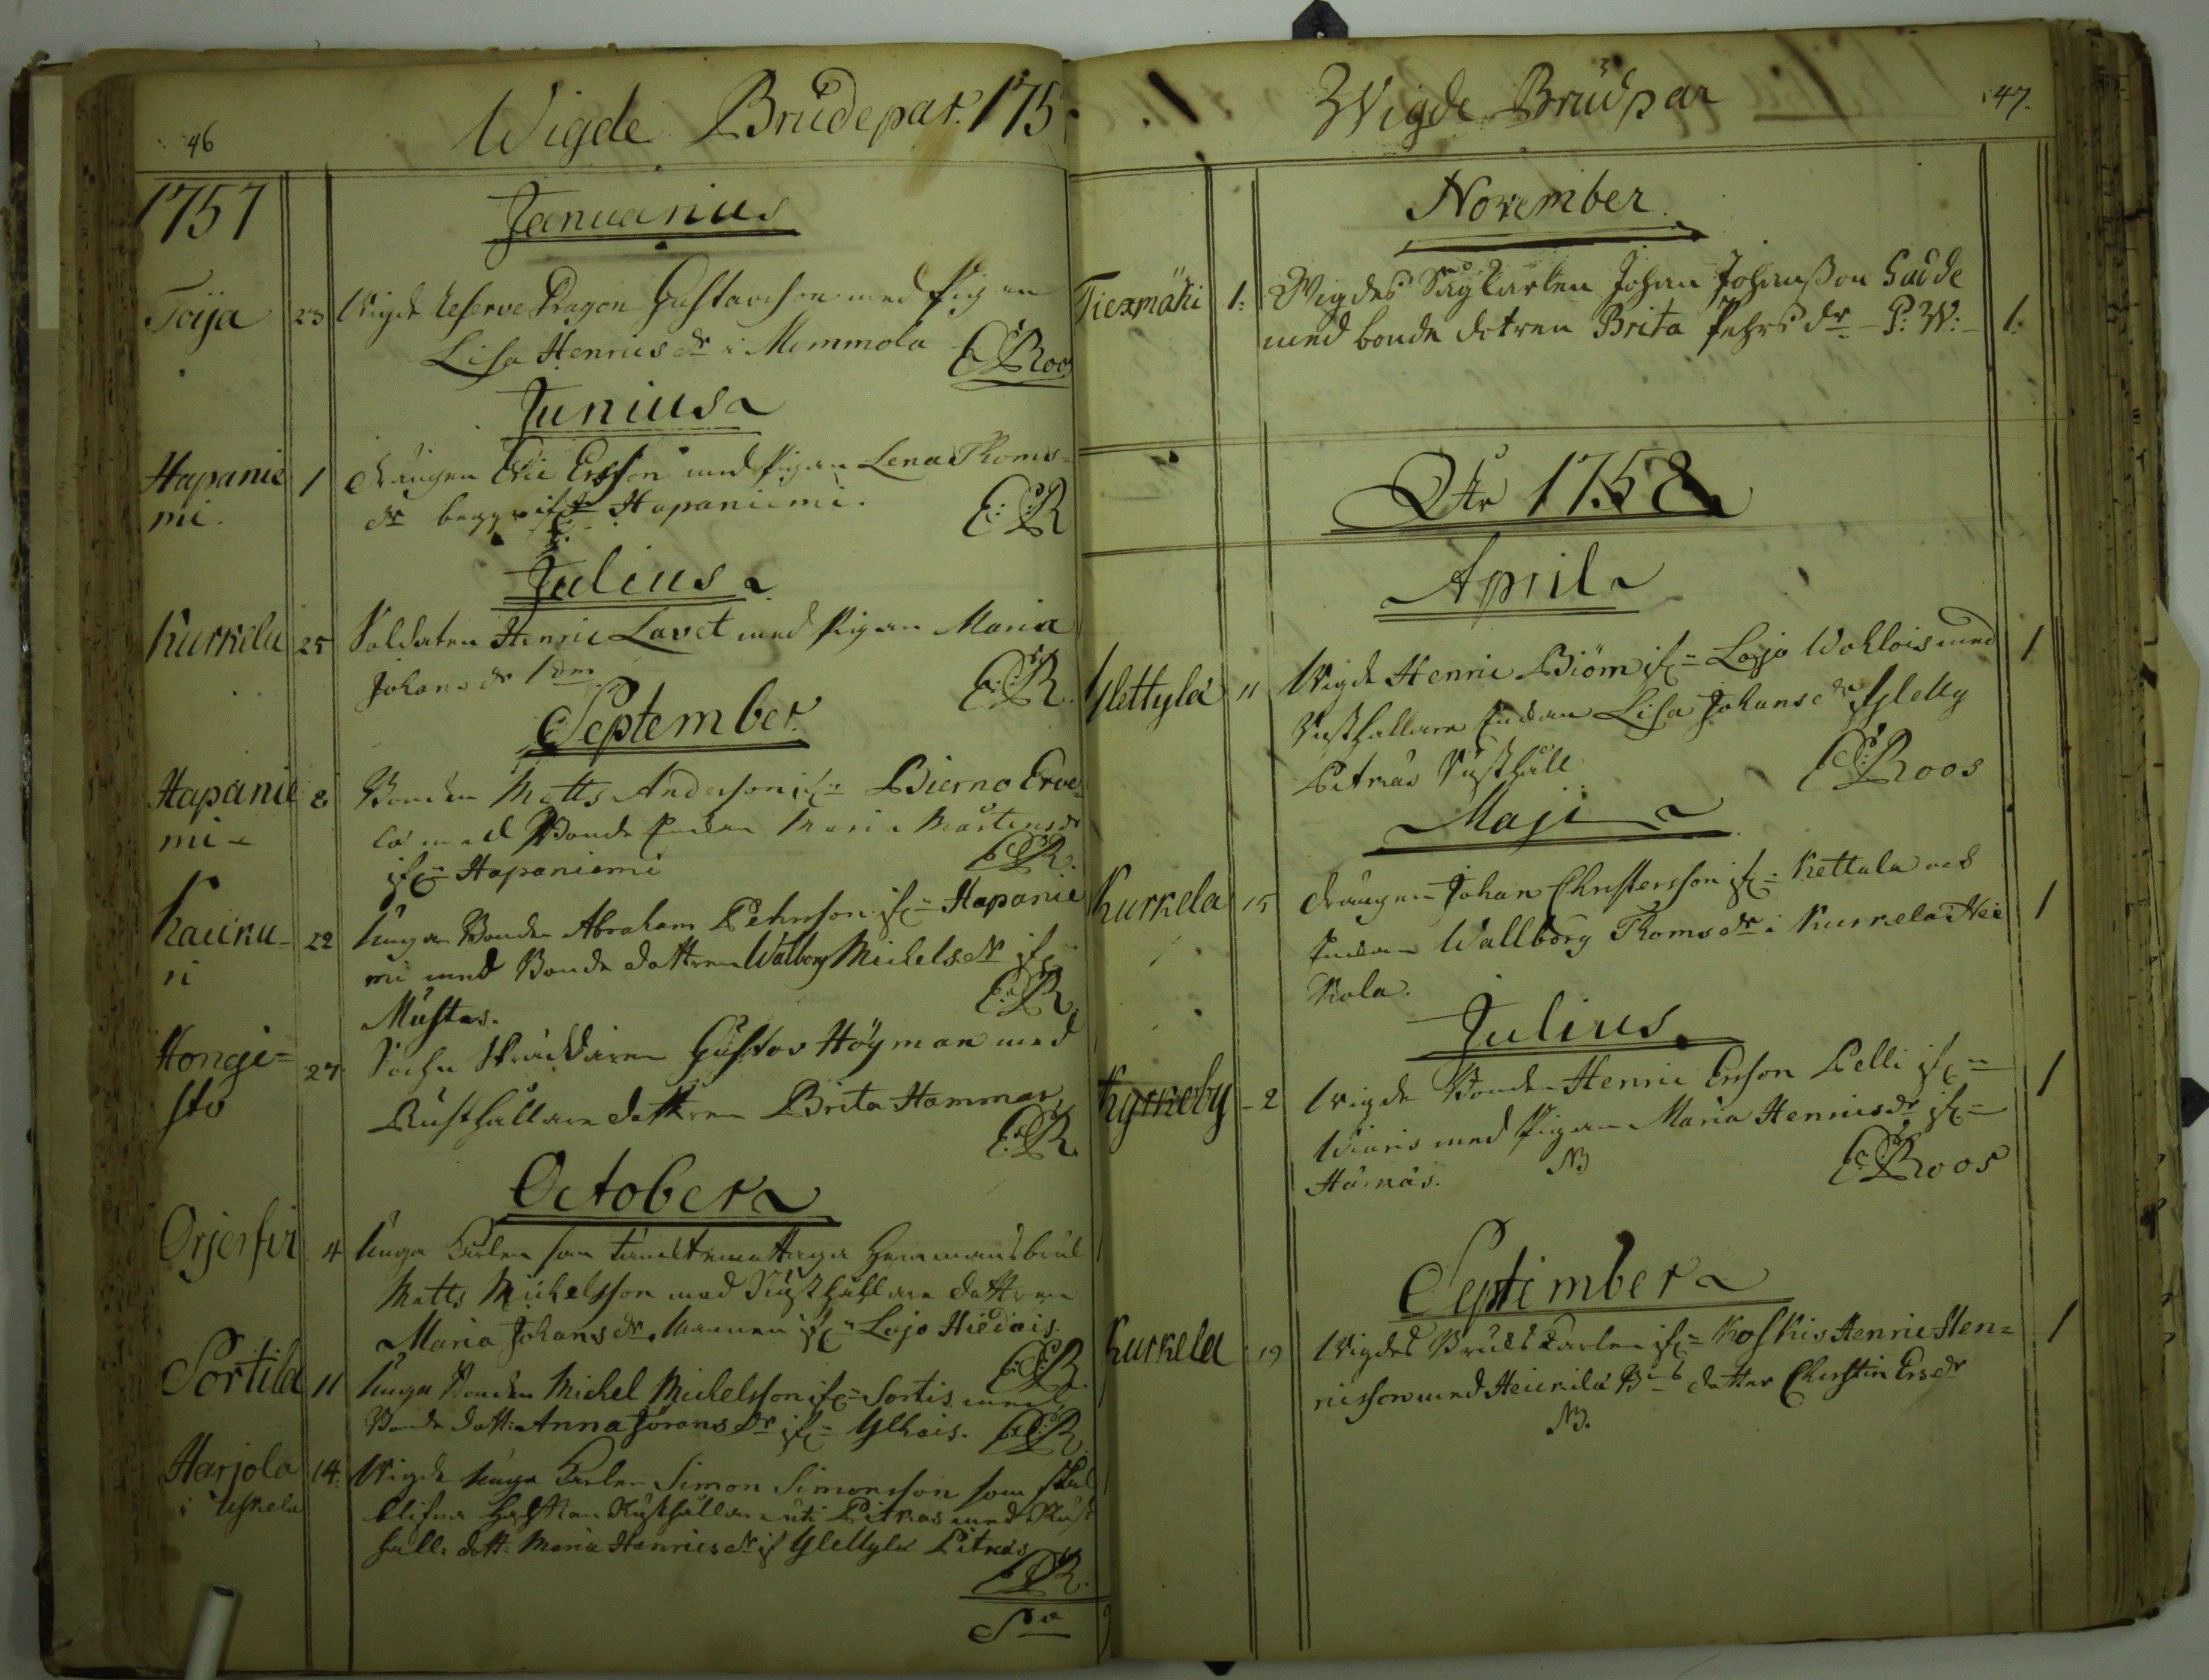 46
Wigde Brudepar. 175
1757
Januarius
Toija 23 Wigde Reserve Dragon Gustavson med Pigan
Lisa Henrics dr i Memmola
E:Roos
Junius
Hapanie 1 drängen Eric Ersson med Pigan Lena Thoms-
mi. dr begge ifr Hapaniemi.
E:R
Julius
Kurkela 25 Soldaten Henric Lavet med Pigan Maria
Johans dr
E:R.
September.
Hapanie 8 Bonden Matts Anderson ifr Bierno Erve-
mi - lä med Bonde Enkan Maria Mårtens dr
ifr Hapaniemi
E:R.
Kauku- 22 Unga Bonden Abraham Pehrsson ifr Hapanie
ri mi med Bonde dottren Walborg Michels dr ifr
Mustas.
E:R
Hongi= 27 Sochn Skräddaren Gustav Höÿman med
sto Rusthållare dottren Brita Hammar
E:R.
October
Orjerfvi 4 Unga Karlen som emottaga Hemmansbruk
Matts Michelsson med Rusthållare dottren
Maria Johans dr ifr Lojo Hiedais.
E:R.
Sortila 11 Unga Bonden Michel Michelsson ifr Sortis med
Bonde dott: Anna Jörans dr ifr Ylhais. E:R.
Harjola 14. Wigde Unga Karlen Simon Simonsson som skal
i Uskela blifva Rusthållare uti Pitkäs med Rust
håll: dott: Maria Henrics dr if Ylettylä Pitkäs
E:R.
Sa
Wigde Brudpar
47.
November.
Tiexmäki 1: Wigdes Sågkarlen Johan Johansson Gadde
med bonde dotren Brita Pehrs dr - P: W: - 1.
Åhr 1758
April
Ylettylä 11 Wigde Henric Biöm ifr Lojo Wohlois med 1
Rusthållare Enkan Lisa Johans dr Yletty
Pitkäs Rusthåll
E:Roos
Maji
Kurkela 15 drängen Johan Christersson ifr Kettala med 1
Enkan Wallborg Thoms dr i Kurkela Nei
Kola.
Julius
Kyrkeby - 2 Wigde Bonden Henric Ersson Pelli ifr 1
Wiaris med Pigan Maria Henrics dr ifr
Härnäs. NB
E:Roos
September
Kurkela 19 Wigdes Bruks Karlen ifr Koskis Henric Hen= 1
ricsson med Heikilä dotter Christin Ers dr
NB.